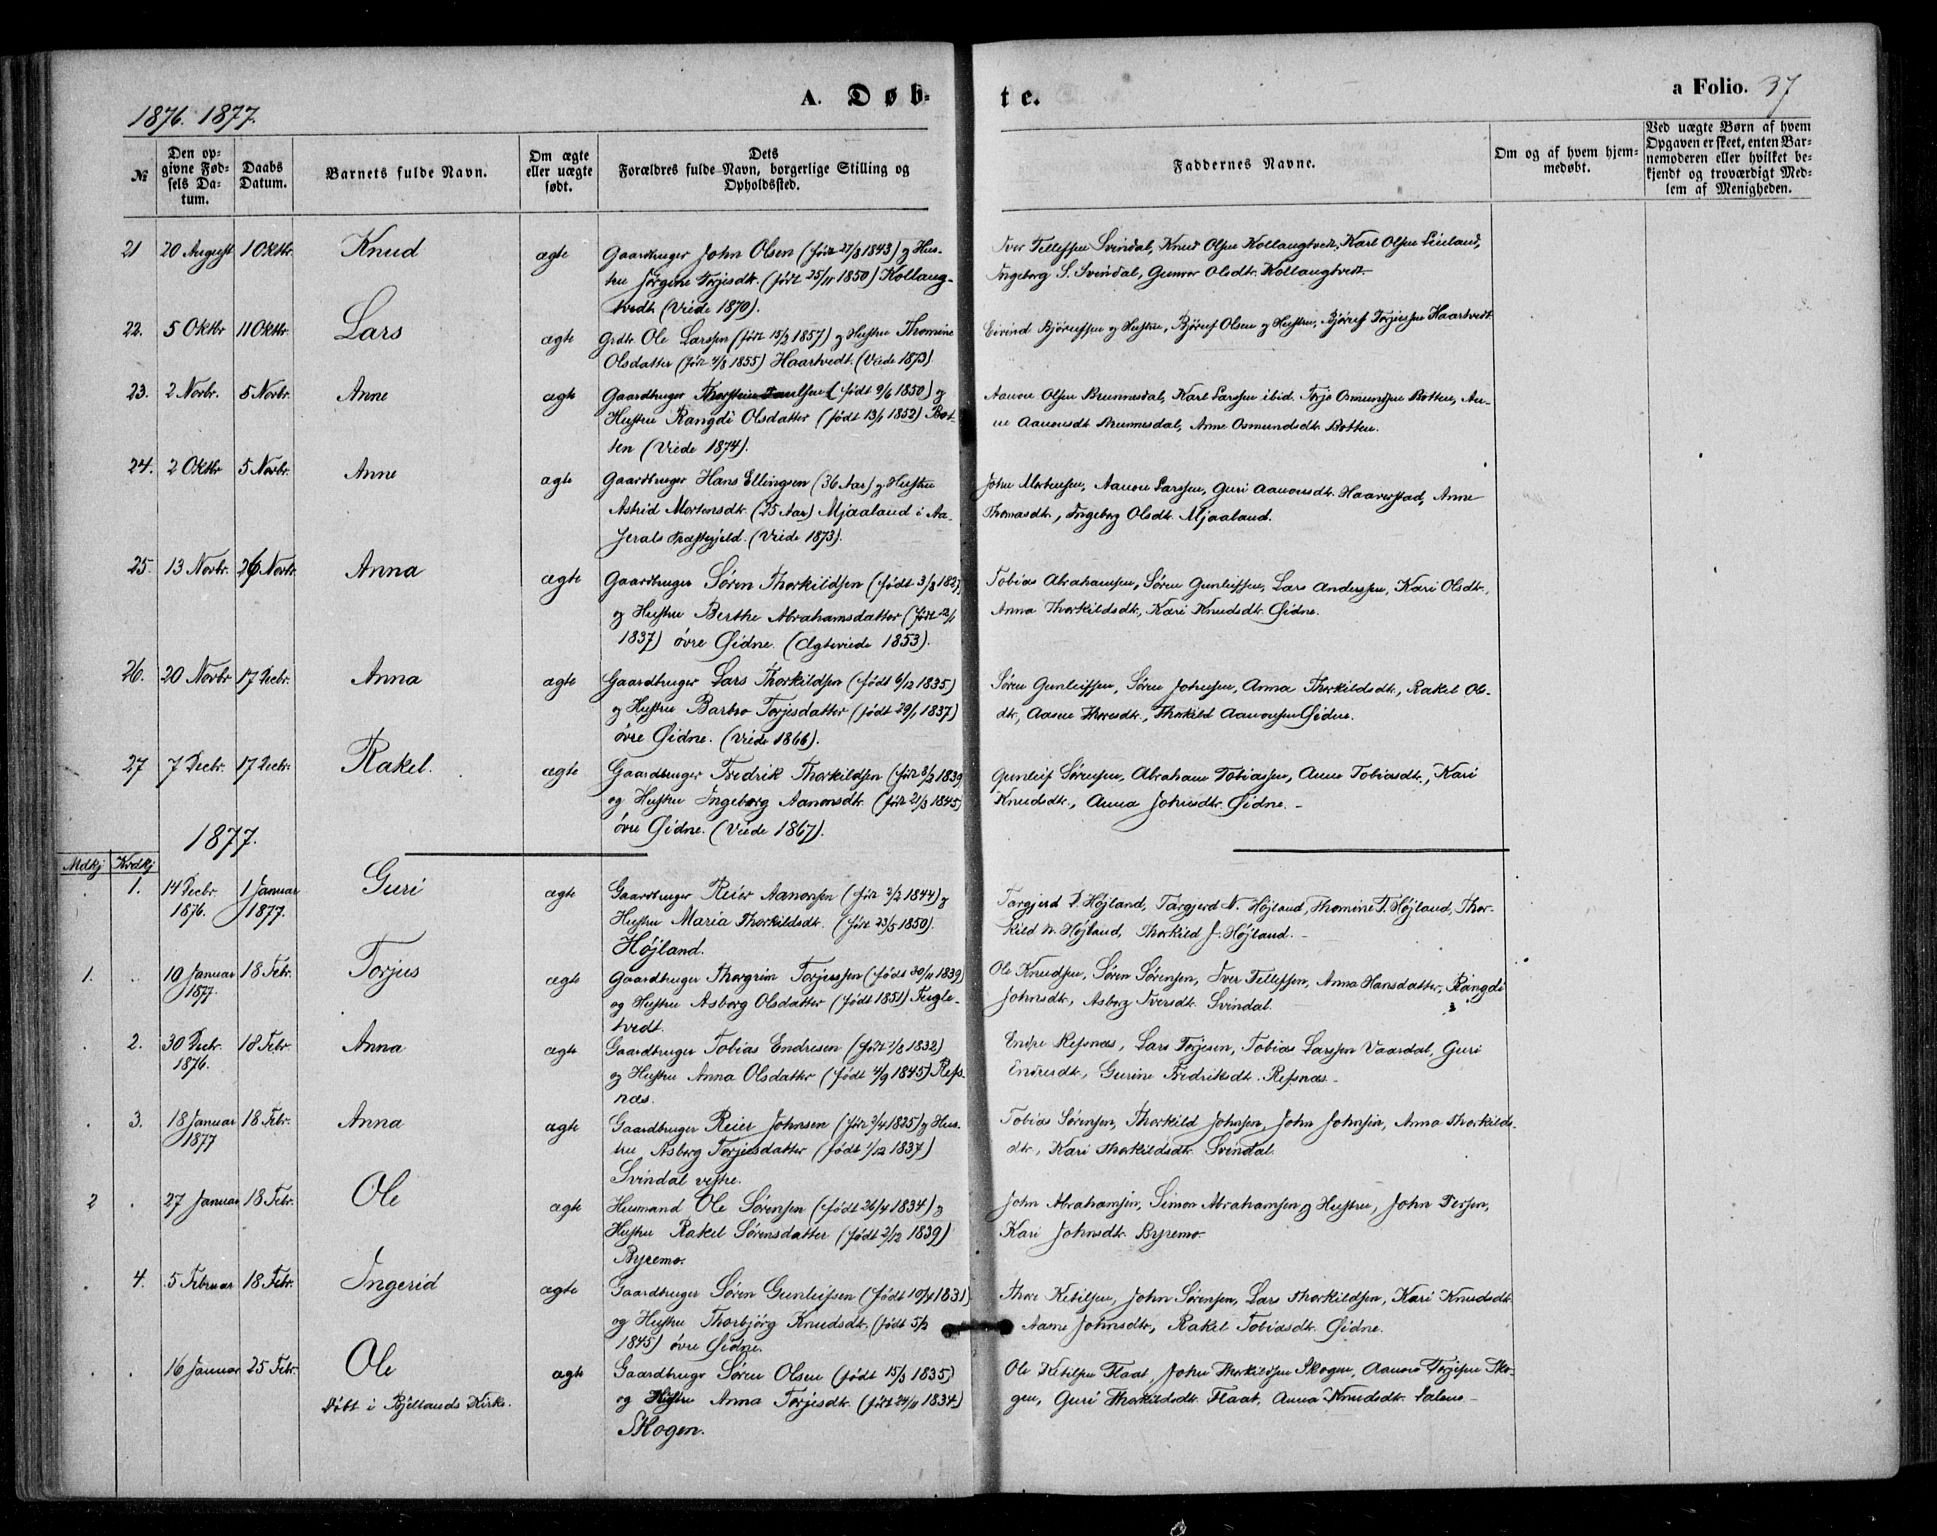 1876. 1877.
A. Døb-
te.
a Folio. 37
№
Den op-
givne Fød-
sels Da-
tum.
Daabs
Datum.
Barnets fulde Navn.
Om ægte
eller uægte
født.
Dets
Forældres fulde Navn, borgerlige Stilling og
Opholdssted.
Faddernes Navne.
Om og af hvem hjem-
medøbt.
Ved uægte Børn af hvem
Opgaven er skeet, enten Bar-
nemoderen eller hvilket be-
kjendt og troværdigt Med-
lem af Menigheden.
21 20 August 1 Oktbr. Knud ægte Gaardbruger John Olsen (født 27/8 1843) og Hus-
tru Jörgine Torjesdtr. (født 25/11 1850) Kollang-
tvedt (Viede 1870).
Iver Tellefsen Svindal, Knud Olsen Kollangtvedt, Karl Olsen
Ingeborg S. Svindal, Gunvor Olsdtr. Kollangtvedt.
22. 5 Oktbr 11 Oktbr. Lars ægte Grdbr. Ole Larssen (født 15/3 1857) og Hustru Thomine
Olsdatter (født 4/8 1855) Haartvedt. (Viede 1873)
Eivind Bjørufsen og Hustru, Bjøruf Olsen og Hustru, Bjøruf Torjussen Haartvedt
23. 2 Novbr. 5 Novbr. Anne ægte Gaardbruger (født 9/6 1850) og
Hustru Rangdi Olsdatter (født 13/1 1852) Bot-
ten (Viede 1874).
Aanon Olsen Brunnesdal, Karl Larssen ibid. Torje Osmundsen Botten, An-
ne Aanonsdt Brunnesdal, Anne Osmundsdt. Botten.
24. 2 Oktbr 5 Novbr. Anne ægte Gaardbruger Hans Ellingsen (36 Aar) og Hustru
Astrid Mortensdtr. (25 Aar) Mjaaland i Aa-
serals Præstegjeld. (Viede 1873).
John Mortensen, Aanon Larssen, Guri Aanonsdtr. Haaverstad, Anne
Thomasdtr., Ingeborg Olsdt. Mjaaland.
25. 13 Novbr. 26 Novbr. Anna ægte Gaardbruger Søren Thorkildsen (født 3/8 1827)
og Hustru Berthe Abrahamsdatter (født 12/1
1837) övre Øidne. (Ægteviede 1853).
Tobias Abrahamsen, Søren Gunleifsen, Lars Anderssen, Kari Olsdtr.,
Anna Thorkildsdtr., Kari Knudsdtr. Øidne.
26. 20 Novbr 17 Decbr. Anna ægte Gaardbruger Lars Thorkildsen (født 6/12 1835)
og Hustru Barbro Torjesdatter (født 29/1 1837)
övre Øidne. (Viede 1866).
Søren Gunleifsen, Søren Johnsen, Anna Thorkildsdt., Rakel Ols-
dtr., Aasne Thoresdtr., Thorkild Aanonsen Øidne.
27 7 Decbr. 17 Decbr. Rakel. ægte Gaardbruger Fredrik Thorkildsen (født 3/2 1839)
og Hustru Ingeborg Aanonsdt. (født 21/3 1845)
övre Øidne. (Viede 1867).
Gunleif Sørensen, Abraham Tobiassen, Anne Tobiasdt., Kari
Knudsdtr., Anna Johnsdtr. Øidne.
1877.
Mdkj Kvdkj
1. 14 Decbr. 1 Januar Guri ægte Gaardbruger Reier Aanonsen (født 2/2 1844) og
1876. 1877. Hustru Maria Thorkildsdt. (født 23/5 1850).
Højland.
Targjerd P. Højland, Targjerd N. Højland, Thomine T. Højland, Thor-
kild N. Højland, Thorkild J. Højland.
1. 10 Januar 18 Febr. Torjus ægte Gaardbruger Thorgrim Torjussen (født 30/11 1839)
1877. og Hustru Asborg Olsdatter (født 1851) Fugle-
tvedt.
Ole Knudsen, Søren Sørensen, Iver Tellefsen, Anna Hansdatter, Rangdi
Johnsdt., Asborg Iversdt. Svindal.
2. 30 Decbr. 18 Febr. Anna ægte Gaardbruger Tobias Endresen (født 1/8 1832)
1876. og Hustru Anna Olsdatter (født 4/9 1845) Refs-
næs.
Endre Refsnæs, Lars Torjesen, Tobias Larssen Vaardal, Guri
Endresdt., Gurine Fredriksdt. Refsnæs.
3. 18 Januar 18 Febr. Anna ægte Gaardbruger Reier Johnsen (født 2/4 1825) og Hus-
1877 tru Asborg Torjusdatter (født 1/12 1837)
Svindal vestre.
Tobias Sørensen, Thorkild Johnsen, John Johnsen, Anna Thorkilds-
dtr., Kari Thorkildsdt. Svindal.
2 27 Januar 18 Febr. Ole ægte Husmand Ole Sørensen (født 26/4 1834) og
Hustru Rakel Sørensdatter (født 2/12 1839)
Byremo.
John Abrahamsen, Simon Abrahamsen og Hustru, John Persen,
Kari Johnsdt. Byremo.
4. 5 Februar 18 Febr. Ingerid ægte Gaardbruger Søren Gunleifsen (født 10/4 1831)
og Hustru Thorbjörg Knudsdt. (født 5/2
1845) övre Øidne.
Thore Ketilsen, John Sørensen, Lars Thorkildsen, Kari Knudsdt.
Aasne Johnsdtr., Rakel Tobiasdt. Øidne.
16 Januar 25 Febr. Ole ægte Gaardbruger Søren Olsen (født 15/3 1835)
Døbt i Bjellands Kirke. og Hustru Anna Torjesdt. (født 24/11 1834)
Skogen.
Ole Ketilsen Flaat, John Thorkildsen Skogen, Aanon Torjesen Sko-
gen, Guri Thorkildsdt. Flaat, Anna Knudsdt.